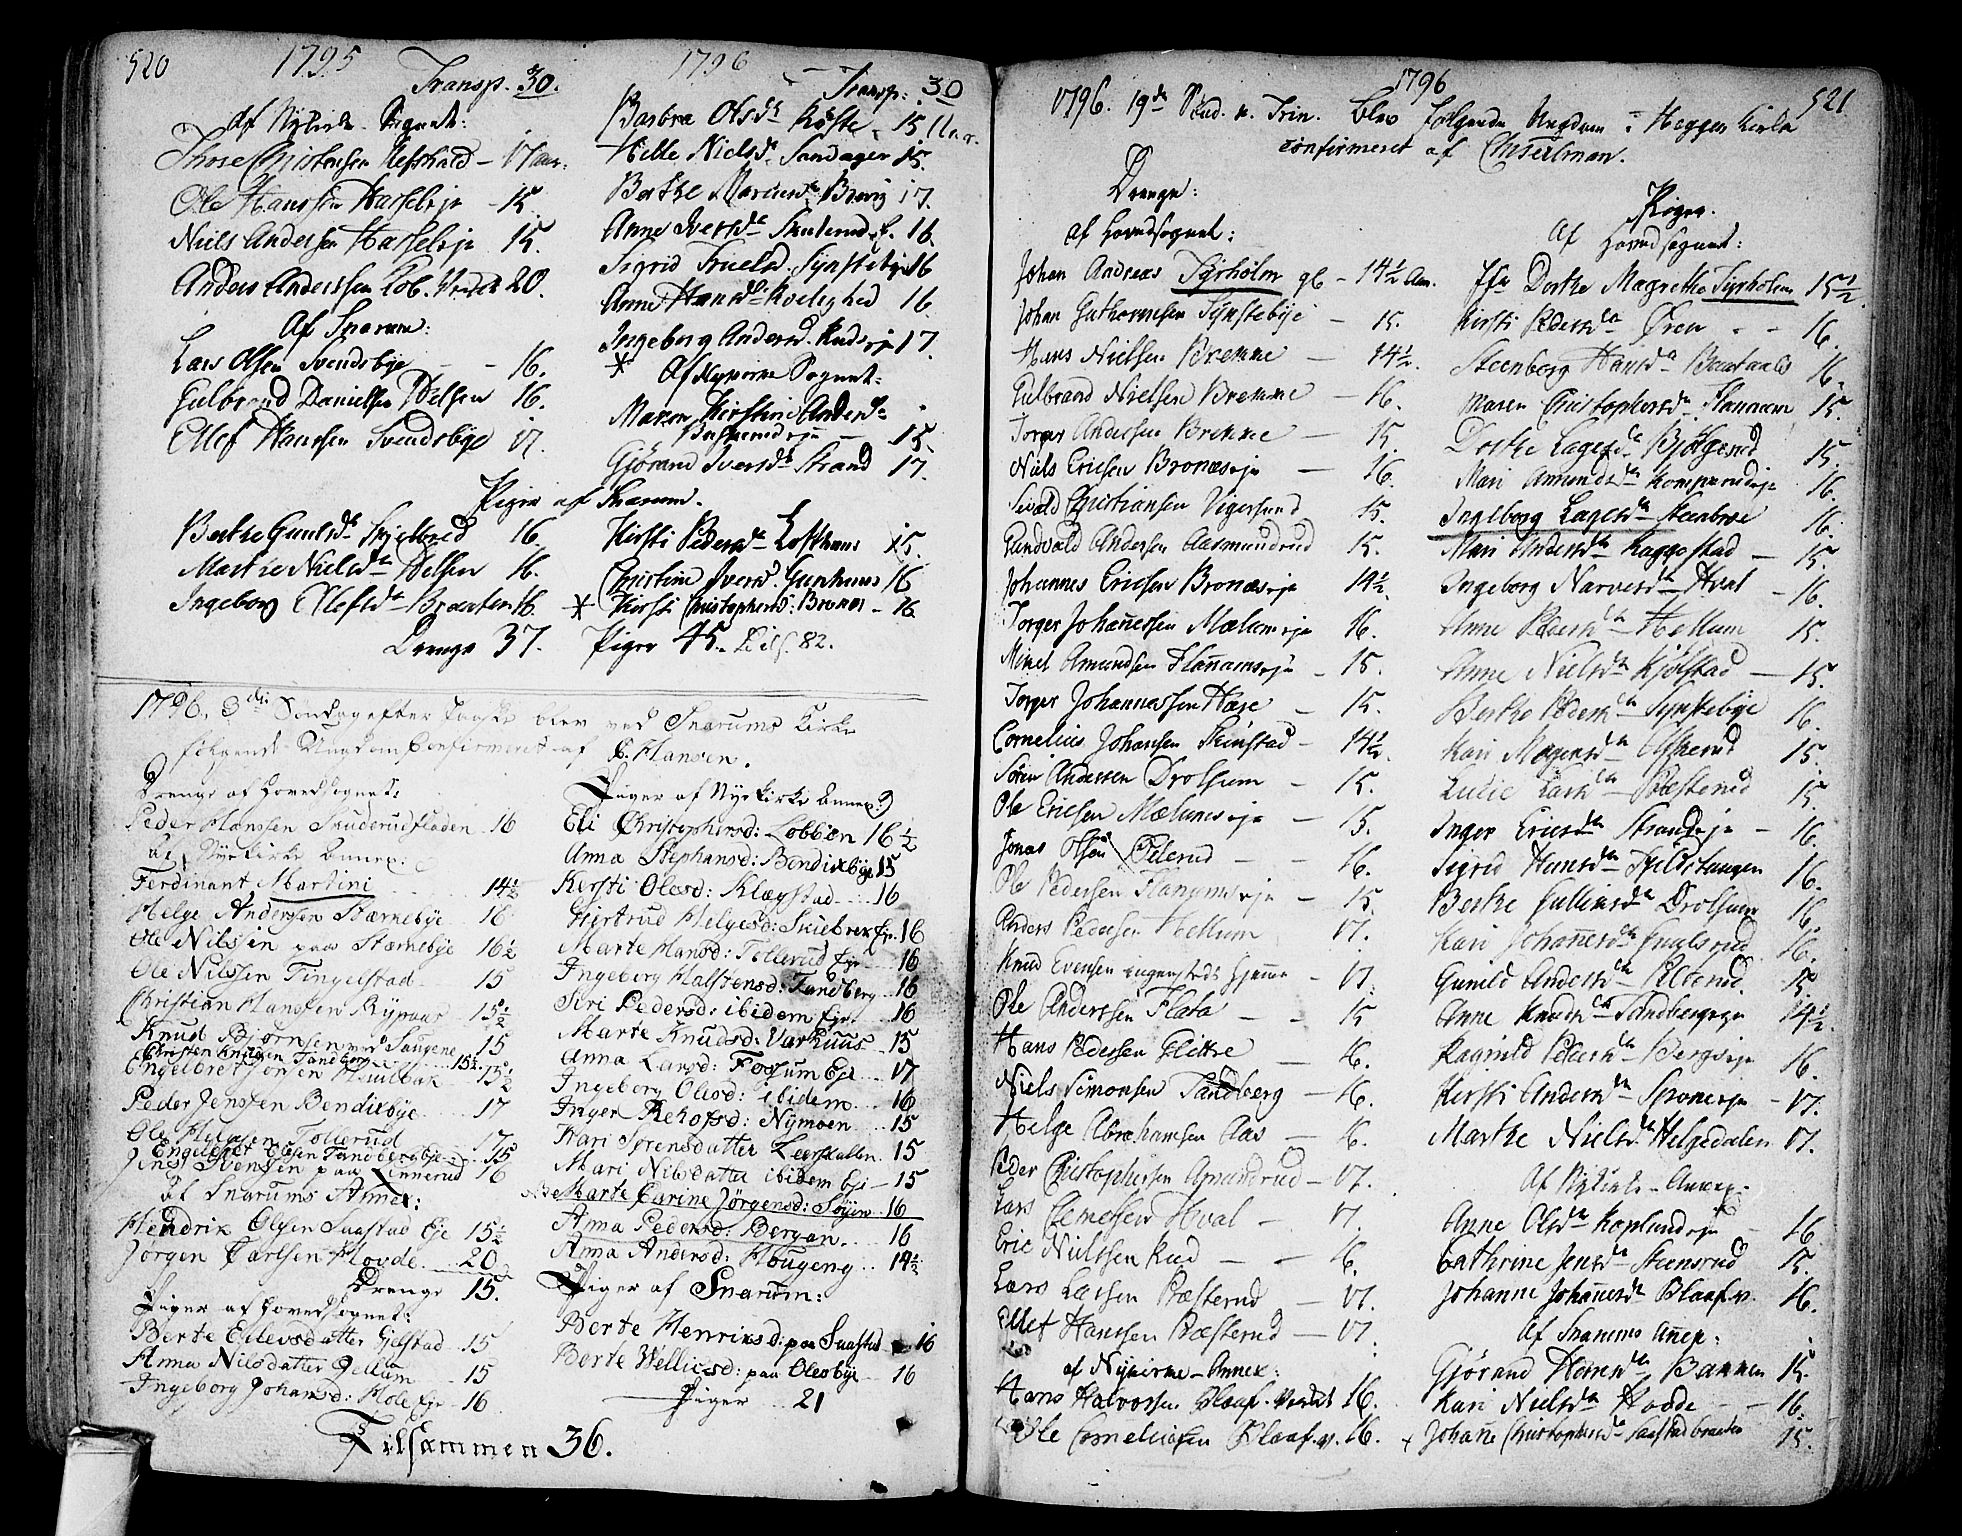 520 1795 1796
Transp. 30.
Af Nykirke Sognet:
Thore Christensen Kefshald - 17 aar.
Ole Hanssen Hasseleje - 15.
Niels Andersen Hasseleje 15.
Anders Anderssen Kob. Værk 20.
Af Snarum:
Lars Olsen Svendsbye - - 16.
Gulbrand Danielsen Delsen 16.
Ellef Hanssen Svendsbye 17.
Transp: 30
Barbra Olsdtr Køste - 15 1/2 aar.
Helle Nielsd. Sandager 15.
Berthe Mariusd. Brevig 17.
Anne Iversdr Skuterud f. 16.
Sigrid Truelsd. Synstebye 16
Anne Hansdr Kvelighed 16.
Ingeborg Andersd. Rudseje 17.
* Af Nykirke Sognet:
Maren Kirstine Andersdr
Buskerudeje - 15.
Gjørand Iversdr Strand 17.
Piger af Snarum.
Berthe Gunilsdr Skjelbred 16.
Marthe Nielsdr Delsen 16.
Ingeborg Ellefsdr Braaten 16
Kirsti Pedersdr Lofthuus 15.
Christine Iversd. Gunhuus 16
* Kirsti Christophersd: Bronæs - 16
Drenge 37. Piger 45. Tils. 82.
1796. 3die Søndag efter Paaske blev ved Snarums Kirke
følgende Ungdom Confirmeret af C. Hansen.
Drenge af Hovedsognet:
Peder Hanssen Skuderudfladen 16
af Nyekirke Annex:
Ferdinant Martini 14 1/2
Helge Andersen Stærnebye 16
Ole Nilssen paa Stærnebye 16 1/2
Ole Nilssen Tingelstad 15
Christian Hanssen Ryparr 15 1/2
Knud Bjørnsen ved Saugene 15
Christen Knudsen Tandberg 15 1/2
Engelbret Joensen Huulbak 15 1/2
Peder Jenssen Bendixbye 17
Ole Helgesen Tollerud 17
Engelbret Olsen Tandbergeje 15
Jens Svensen paa Linnerud 16
Af Snarums Annex:
Hendrik Olsen Saastad Eje 15 1/2
Jørgen Carlsen Hovde 20
Drenge 15.
Piger af Hovedsognet:
Berte Ellevsdatter Gjelstad 15
Anna Nilsdatter Hellum - 15
Ingeborg Johansd: Hole Eje - 16
Piger af Nyekirke Annex:
Eli Christophersd: Lobben 16 1/2
Anna Stephansd: Bendixbye 15
Kersti Olesd: Klægstad 16
Giertrud Helgesd: Skiebrek Eje 16
Marte Hansd: Tollerud Eje 16
Ingeborg Halstensd: Tandberg 16
Siri Pedersd: ibidem Eje 16
Marte Knudsd: Varhuus 15
Anna Larsd: Fossum Eje 17
Ingeborg Olesd: ibidem 16
Inger Rekofsd: Nymoen 15
Kari Sørensdatter Leerskallen 15
Mari Nilsdatter ibidem Eje - 15
Marte Carine Jørgensd: Søyen 16
Anna Pedersd: Bergan 16
Anna Andersd: Hougeng 14 1/2
Piger af Snarum:
Berte Henriksd: paa Saastad 16
Berte Wellicsd: paa Olesbye 16
Piger 21
Tilsammen 36.
1796 521
1796. 19de Sønd. e. Trin. blev følgende Ungdom i Heggen Kirke
confirmeret af Chselman.
Drenge:
af Hovedsognet:
Johan Andreas Tyrholm gl - 14 1/2 Aar.
Johan Guthormsen Synstebye - 15.
Hans Nielsen Brekke - 14 1/2.
Gulbrand Nielsen Brekke - 16.
Torger Andersen Brekke - 15.
Niels Ericsen Bronæseje - 16.
Sivald Christiansen Vigersund 15.
Gundvald Andersen Aasmundrud 15.
Johannes Ericsen Bronæseje 14 1/2
Torger Johannessen Mælumseje 16.
Mikel Amundsen Flannumseje - 15.
Torger Johannessen Hæje - 15.
Cornelius Johansen Skinstad - 14 1/2
Søren Andersen Drolsum - 15.
Ole Ericsen Mælumseje - 15.
Jonas Olsen Pelerud - - 16.
Ole Pedersen Flannumseje - 15
Anders Pedersen Hellum - 17.
Knud Evensen Hjemme - 17.
Ole Anderssen Flata - - 15
Hans Pedersen Glittre - 16.
Niels Simonsen Tandberg - 16.
Helge Abrahamsen Aas - 16.
Peder Christophersen Amundrud - 17.
Lars Clemetsen Hval - 17.
Eric Nielssen Rud - - 16.
Lars Larsen Præsterud - 17.
Ellef Hanssen Præsterud - 17.
af Nykirke - Annex:
Hans Halvorsen Blaaf. Værket 16.
Ole Corneliusen Blaaf. v. 16.
Piger.
Af Hovedsognet:
Jfr Dorthe Magrethe Tyrholm 15 1/2.
Kirsti Pedersdr Øren - - 16.
Steenborg Hansdr Bastaals 16.
Maren Christophersdr Flannum 15.
Dorthe Lagesdr Bjølgerud 15.
Mari Amundsdr Komperudeje 16.
Ingeborg Lagesdr Steenbroe 16.
Mari Andersdr Kaggestad - 15.
Ingeborg Narvesdr Hval - 16.
Anne Pedersdr Hellum 15.
Anne Nielsdr Kjølstad - 15.
Berthe Pedersdr Synstebye 16.
Kari Mogensdr Askerud 15.
Lulie Larsdr Præsterud 15.
Inger Ericsdr Strandeje - 16.
Sigrid Hansdr Skjelshaugen 16.
Berthe Gulliksdr Drolsum 16.
Kari Johannesdr Juulsrud 16.
Gunild Andersdr Pelerud 15
Anne Knudsdr Tandbergeje 14 1/2.
Ragnild Pedersdr Bergseje 16.
Kirsti Andersdr Sponeeje - 17.
Marthe Nielsdr Helgedalen 17.
Af Nykirke - Annex.
Anne Olsdr Koplundeje - 16.
Cathrine Jensdr Steensrud 15.
Johanne Johannesdr Blaaf. v. 16.
Af Snarums Annex:
Gjørand Hansdr Bakken 15.
Kari Nielsdr Hovde - - 16.
+ Johanne Christophersdr Saastadbraaten 15.